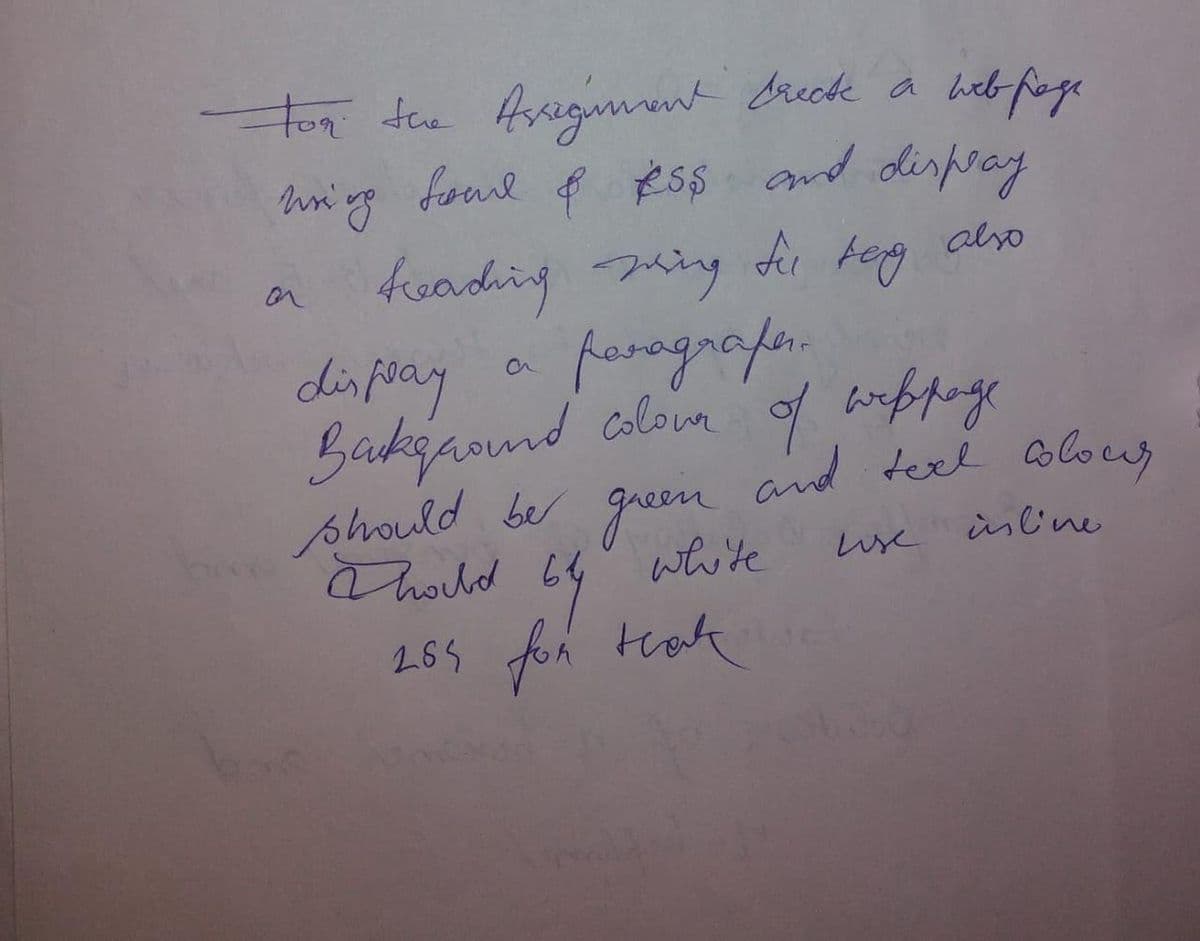 For the Assignment Create a webpage
using html & CSS and display
a heading using h1 tag also
display a paragraph.
Background colour of webpage
should be green and text colour
should be white use inline
CSS for that